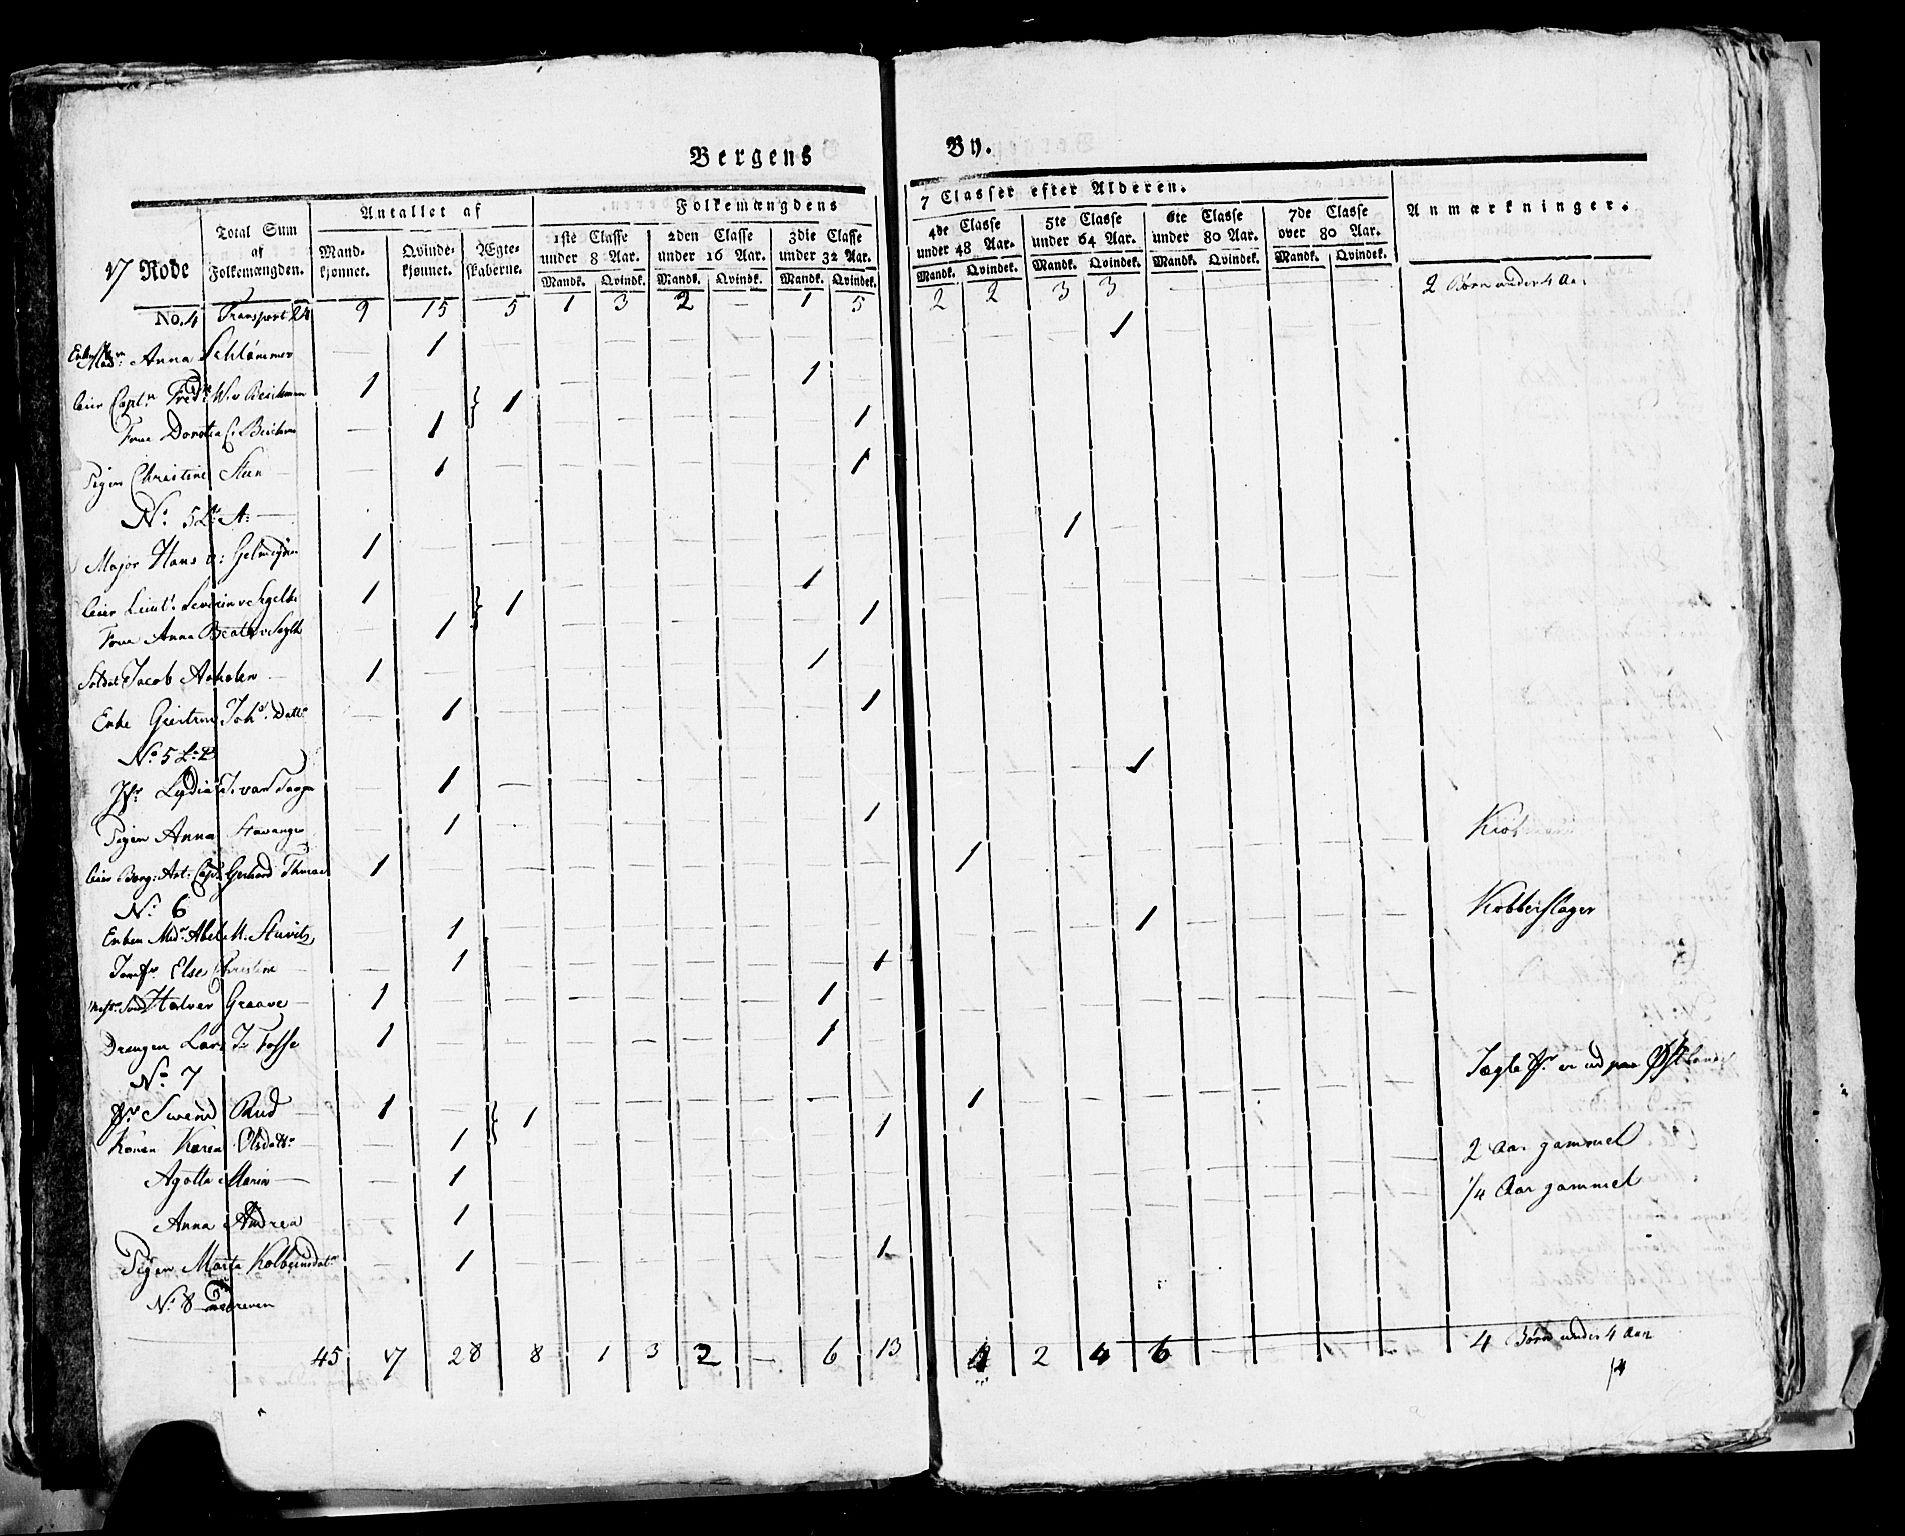 Bergens By.
17 Rode
Total Sum af Folkemængden.
Antallet af
Mandkjønnet. Qvindekjønnet. Ægteskaberne.
Folkemængdens 7 Classer efter Alderen.
1ste Classe under 8 Aar. 2den Classe under 16 Aar. 3die Classe under 32 Aar. 4de Classe under 48 Aar. 5te Classe under 64 Aar. 6te Classe under 80 Aar. 7de Classe over 80 Aar.
Mandk. Qvindek. Mandk. Qvindek. Mandk. Qvindek. Mandk. Qvindek. Mandk. Qvindek. Mandk. Qvindek. Mandk. Qvindek.
Anmærkninger.
No. 4 Transport 24 9 15 5 1 3 2 — 1 5 2 2 3 3 — — — — 2 Børn under 4 Aar
Mad: Anna Schlömmer — 1 — — — — — — — — — — 1
Capt:n Fred: W. v Beichman 1 — } 1 — — — — 1 —
Frue Dorotea C. Beichman — 1 — — — — — 1
Pigen Christine Steen — 1 — — — — — — 1
No. 5 Lr. A:
Major Hans v: Gelmeyden 1 — — — — — — — — 1
Lieut: Severin v Segelke 1 — } 1 — — — — 1 —
Frue Anna Beate v Seglk — 1 — — — — — 1
Soldat Jacob Asheler 1 — — — — — — 1
Enke Giertrue Joh: Datt: — 1 — — — — — — 1
No. 5 Lr. B
Jfr. Lydia T. van Tangen — 1 — — — — — — — 1
Pigen Anna Stavanger — 1 — — — — — — 1
Borg: Art: Capt: Gerhard Thurae 1 — — — — — — — — 1
No. 6
Enken Md: Abel M. Stuvitz — 1 — — — — — — — — — — 1 — — — — Kobberslager
Jomfr. Else Christine — 1 — — — — — — 1
Halvor Graave 1 — — — — — — 1 —
Drengen Lars J. Fosse 1 — — — — — — 1
No. 7
Svend Rud 1 — } 1 — — — — — — 1
Konen Karen Olsdatt: — 1 — — — — — 1
Agotta Marie — 1 — 2 Aar gammel
Anna Andrea — 1 — 1/4 Aar gammel
Pigen Marta Kolbeensdat: — 1 — — — — — — 1
No. 8
45 17 28 8 1 3 2 — 6 13 4 2 4 6 — — — — 4 Børn under 4 Aar